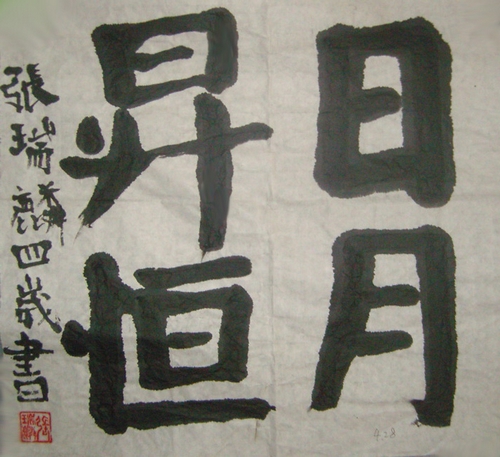 日月
昇恒
張瑞麟四歲書